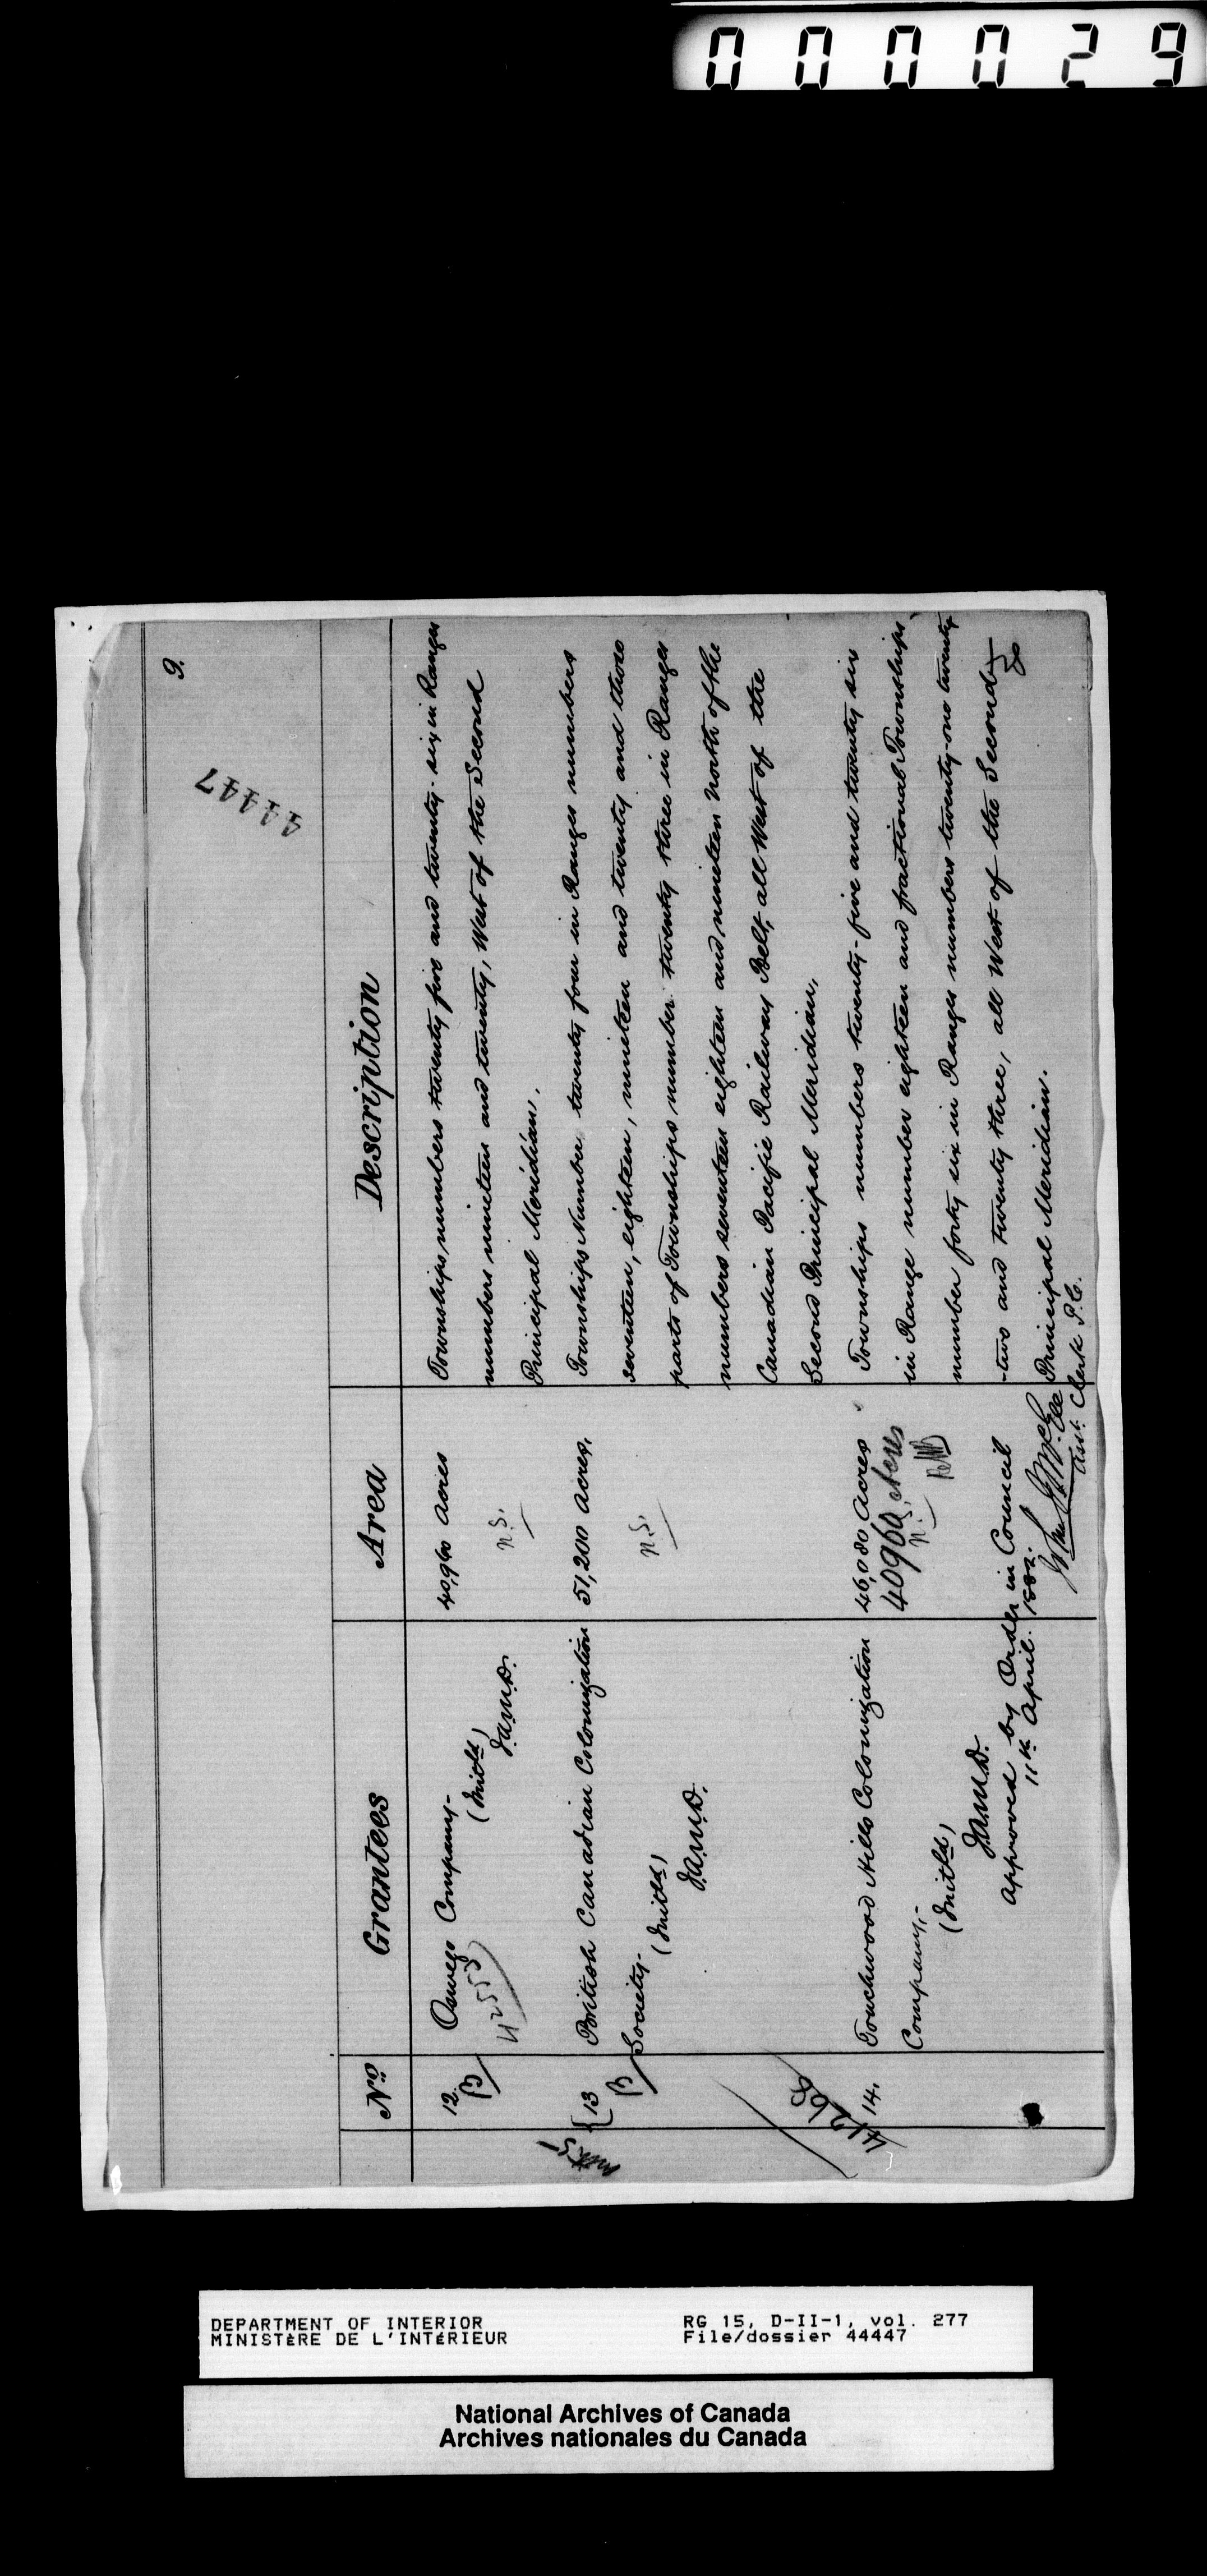 000029
9.
44447
No Grantees Area Description
12. Oswego Company- 40,960 Acres Townships numbers twenty five and twenty-six in Ranges
(B) 42553 (Initld) n.S. numbers nineteen and twenty, West of the Second
J.A.M.D. Principal Meridian.
13 British Canadian Colonization 51,200 Acres, Townships Number twenty four in Ranges numbers
(B) Society- n.S. seventeen, eighteen, nineteen and twenty and those
(Initld) parts of Townships number twenty three in Ranges
J.A.M.D. numbers seventeen eighteen and nineteen North of the
Canadian Pacific Railway Belt, all West of the
Second Principal Meridian,
41268
14. Touchwood Hills Colonization 46,080 Acres Townships numbers twenty-five and twenty six
Company,- 40960 Acres in Range number eighteen and fractional Townships
(Initld) n.S. number forty six in Ranges numbers twenty-one twenty
J.A.M.D. -two and twenty three, all West of the Second
Principal Meridian.
Approved by Order in Council
11th April. 1882.
McGee
Asst. Clerk P.C.
DEPARTMENT OF INTERIOR
MINISTÈRE DE L'INTÉRIEUR
RG 15, D-II-1, vol. 277
File/dossier 44447
National Archives of Canada
Archives nationales du Canada